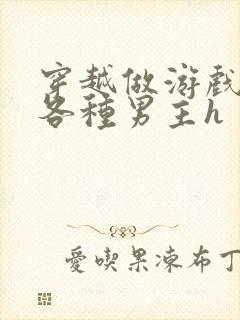 穿越做游戲
各種男主h
愛喫果凍布丁